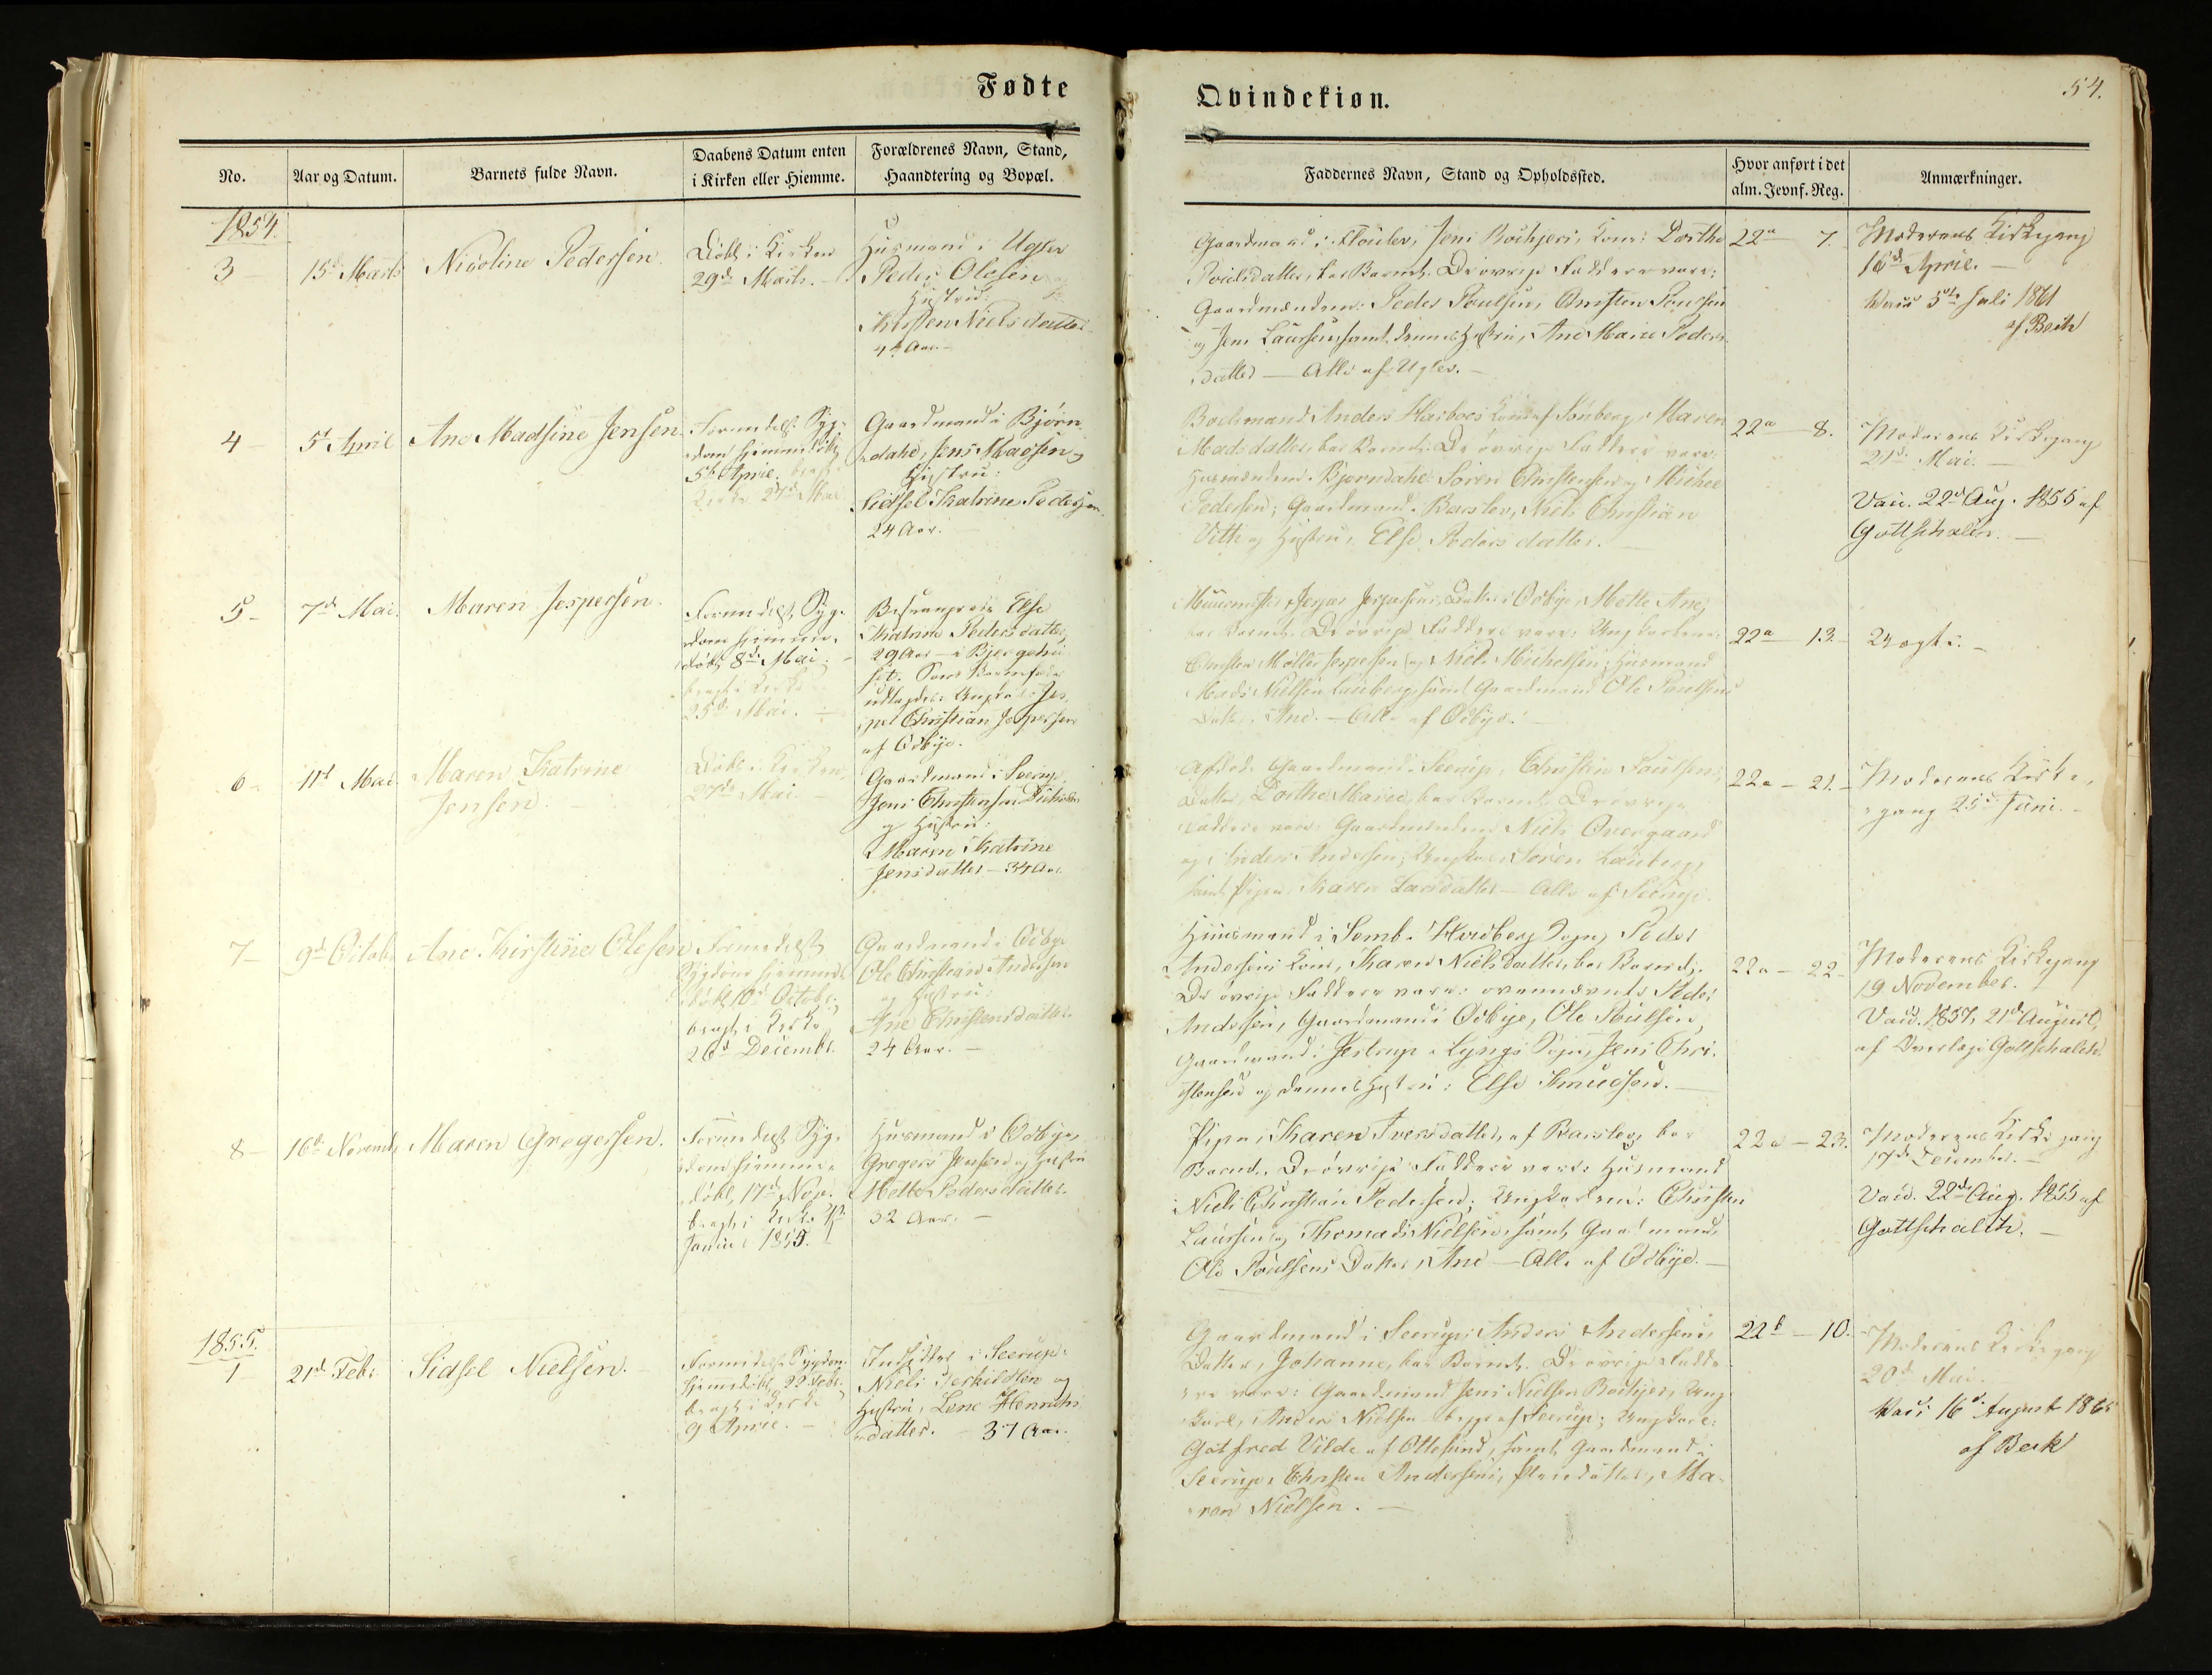 Fødte
Qvindekiøn.
54.
No.
Aar og Datum.
Barnets fulde Navn.
Daabens Datum enten
i Kirken eller Hiemme.
Forældrenes Navn, Stand,
Haandtering og Bopæl.
Faddernes Navn, Stand og Opholdssted.
Hvor anført i det
alm. Jevnf. Reg.
Anmærkninger.
1854.
3
15d Marts
Nicoline Pedersen
Døbt i Kirken
29d Marts.
Huusmand i Uglev
Peder Olesen
Hustru:
Kirsten Nielsdatter
Gaardmand i Jens Kone: Dorthe
bar Barnet. De øvrige Faddere vare:
Gaardmændene: Peder Poulsen, Christen Poulsen
og Jens Laursen samt dennes Hustru, Ane Marie Peders
datter — Alle af Uglev.
22a — 7.
Moderens Kirkegang
16d April.
Vacc 5te Juli 1861
4
5t April
Ane Madsine Jensen
Formedelst Syg-
dom hjemmedøbt
5t April. bragt i
Kirke 21d Mai
Gaardmand i Bjørn
dahl, Jens Madsen og
Hustru:
Sidsel Katrine Pedersen
24 Aar.
Anders Kone af Sønberg, Maren
Madsdatter, bar Barnet. De øvrige Faddere vare:
Huusmændene i Bjørndahl Søren Christensen og Michel
Pedersen; Gaardmand i Barslev, Niels Christian
Vith og Hustru, Else Pedersdatter.
22a — 8.
Moderens Kirkegang
21d Mai.
Vacc. 22d Aug. 1855 af
Gottschalch.
5
7d Mai.
Maren Jespersen.
Formedelst Syg-
dom hjemme-
døbt 8d Mai;
bragt i Kirke
25d Mai.
Else
Katrine Pedersdatter,
29 Aar — i
Som Barnefader
udlagdes: Ungkarl Jes-
per Christian Jespersen
af Odbye.
Jesper Jespersens Datter i Odbye, Mette Ane,
bar Barnet. De øvrige Faddere vare: Ungkarlene:
Christen Møller Jespersen og Niels Michelsen; Huusmand
Mads Nielsen Lauberg samt Gaardmand Ole Poulsens
Datter, Ane. — Alle af Odbye.
22a — 13.
Uægte.
6
11d Mai.
Maren Katrine
Jensen.
Døbt i Kirken
27d Mai.
Gaardmand i Seerup,
Jens Christensen
og Hustru:
Maren Katrine
Jensdatter — 34 Aar.
Afdøde Gaardmand i Seerup, Christen Poulsens
Datter, Dorthe Marie, bar Barnet. De øvrige
Faddere vare: Gaardmændene Niels Overgaard
og Anders Andersen; Ungkarl Søren Lauberg,
samt Pigen Karen Larsdatter — Alle af Seerup.
22a — 21.
Moderens Kirke-
gang 25d Juni.
7
9d Octobr
Ane Kirstine Olesen
Formedelst
Sygdom hjemme
døbt 10d Octobr.
bragt i Kirke
26d Decembr.
Gaardmand i Odbye
Ole Christian Andersen
og Hustru:
Ane Christensdatter
24 Aar.
Huusmand i Hvidberg Sogn, Peder
Andersens Kone, Karen Nielsdatter, bar Barnet.
De øvrige Faddere vare: ovennævnte Peder
Andersen, Gaardmand i Odbye, Ole Poulsen,
Gaardmand i Jestrup i Lyngs Sogn, Jens Chri-
stensen og dennes Hustru: Else Knudsen.
22a — 22
Moderens Kirkegang
19 November.
Vacc. 1857, 21d August,
af Gottschalch.
8
16d Novembr
Maren Gregersen.
Formedelst Syg-
dom hjemme-
døbt 17d Nov.
bragt i Kirke
Januar 1855.
Huusmand i Odbye,
Gregers Jensen og Hustru
Mette Pedersdatter.
32 Aar.
Pigen Karen Iversdatter, af Barslev, bar
Barnet. De øvrige Faddere vare: Huusmand
Niels Christian Pedersen; Ungkarlene: Christen
Laursen og Thomas Nielsen, samt Gaardmand
Ole Poulsens Datter, Ane — Alle af Odbye.
22a — 23.
Moderens Kirkegang
17d December.
Vacc. 22d Aug. 1855 af
Gottschalch.
1855.
1
21d Febr.
Sidsel Nielsen.
Formedelst Sygdom
hjemmedøbt 22 Febr.
bragt i Kirke
9 April.
Indsidder i Seerup:
Niels Terkildsen og
Hustru, Lene Henrichs
datter. — 37 Aar.
Gaardmand i Seerup, Anders Andersens
Datter, Johanne, bar Barnet. De øvrige Fadde-
re vare: Gaardmand Jens Nielsen Ung-
karl, Anders Nielsen begge af Seerup; Ungkarl:
Gotfred Vilde af Oddesund, samt Gaardmand i
Seerup, Christen Andersens Stedatter, Ma-
ren Nielsen.
22b — 10.
Moderens Kirkegang
20d Mai.
Vacc 16d August 1865
af Beck